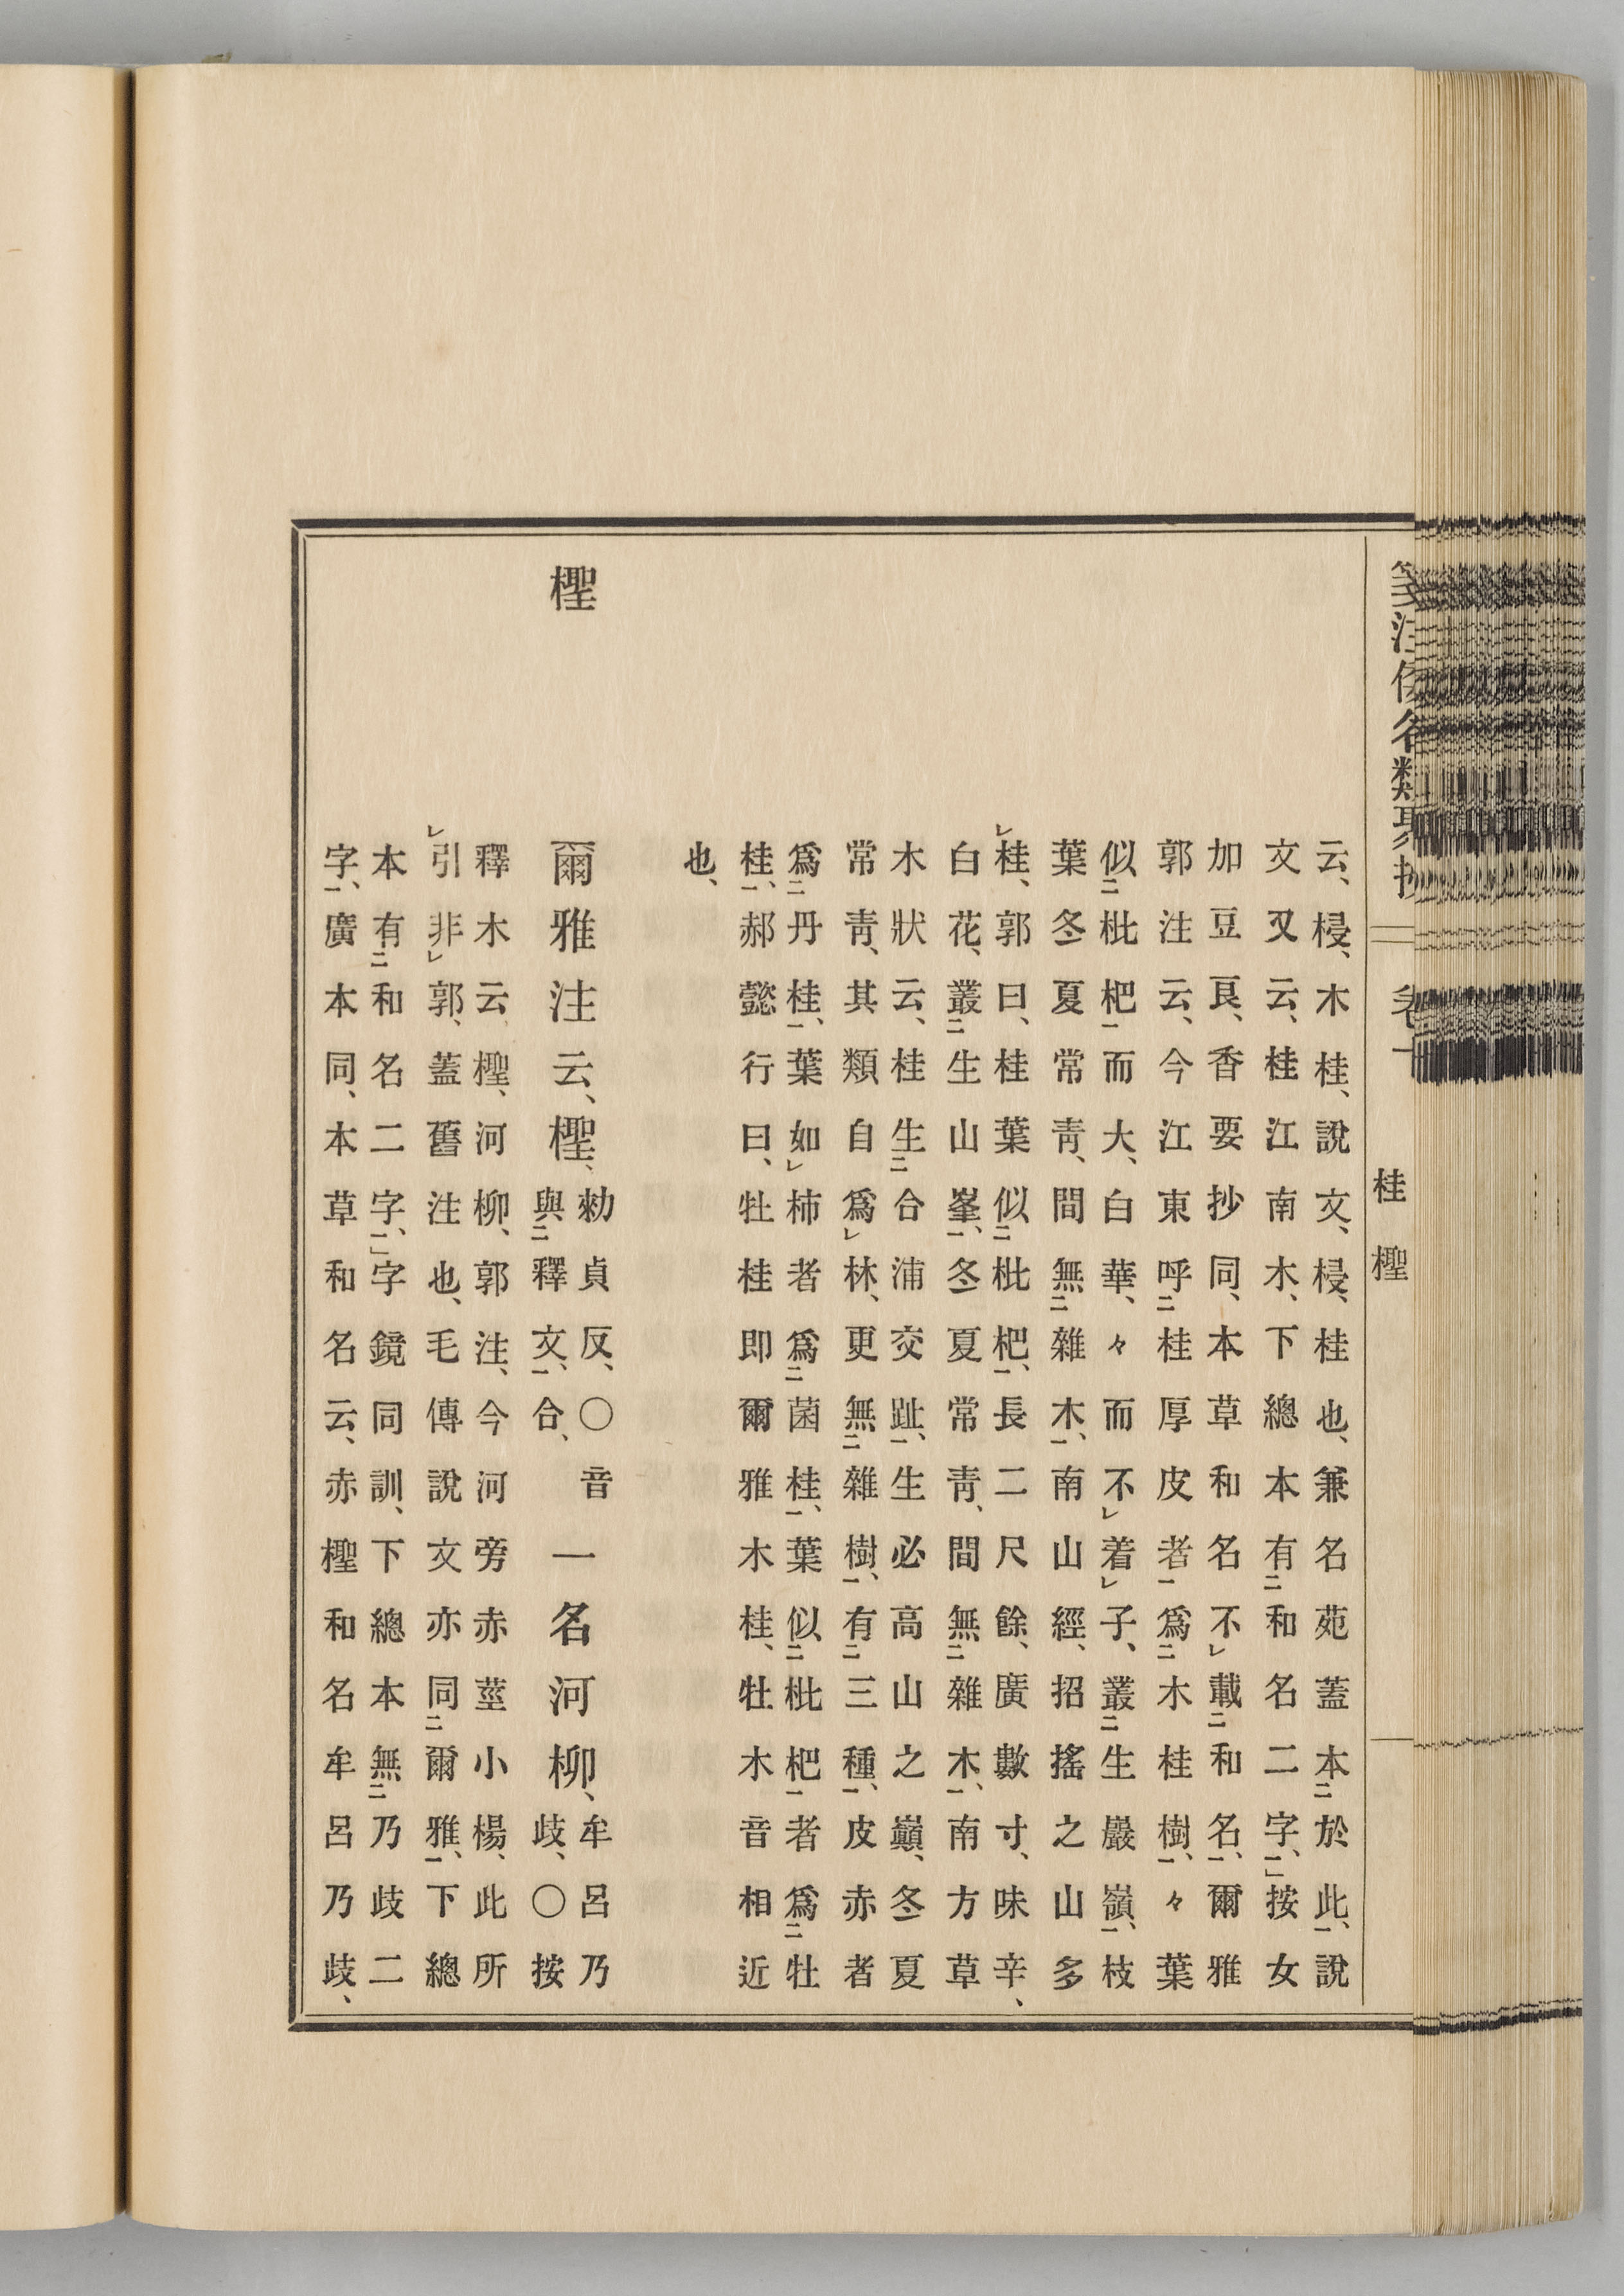 箋注倭名類聚抄 卷十 桂 檉
云、梫、木桂、說文、梫、桂也、兼名苑蓋本二於此一、說
文又云、桂江南木、下總本有二和名二字、一」按女
加豆良、香要抄同、本草和名不レ載二和名一、爾雅
郭注云、今江東呼二桂厚皮者一爲二木桂樹一、々葉
似二枇杷一而大、白華、々而不レ着レ子、叢二生巖嶺一、枝
葉冬夏常靑、間無二雜木一、南山經、招搖之山多
レ桂、郭曰、桂葉似二枇杷一、長二尺餘、廣數寸、味辛、
白花、叢二生山峯一、冬夏常靑、間無二雜木一、南方草
木狀云、桂生二合浦交趾一、生必高山之巓、冬夏
常靑、其類自爲レ林、更無二雜樹一、有二三種一、皮赤者
爲二丹桂一、葉如レ柿者爲二菌桂一、葉似二枇杷一者爲二牡
桂一、郝懿行曰、牡桂即爾雅木桂、牡木音相近
也、
檉
爾雅注云、檉、勑貞反、〇音與二釋文一、合、一名河柳、牟呂乃歧、〇按
釋木云、檉、河柳、郭注、今河旁赤莖小楊、此所
レ引非レ郭、蓋舊注也、毛傳說文亦同二爾雅一、下總
本有二和名二字、一」字鏡同訓、下總本無二乃歧二
字一、廣本同、本草和名云、赤檉和名牟呂乃歧、